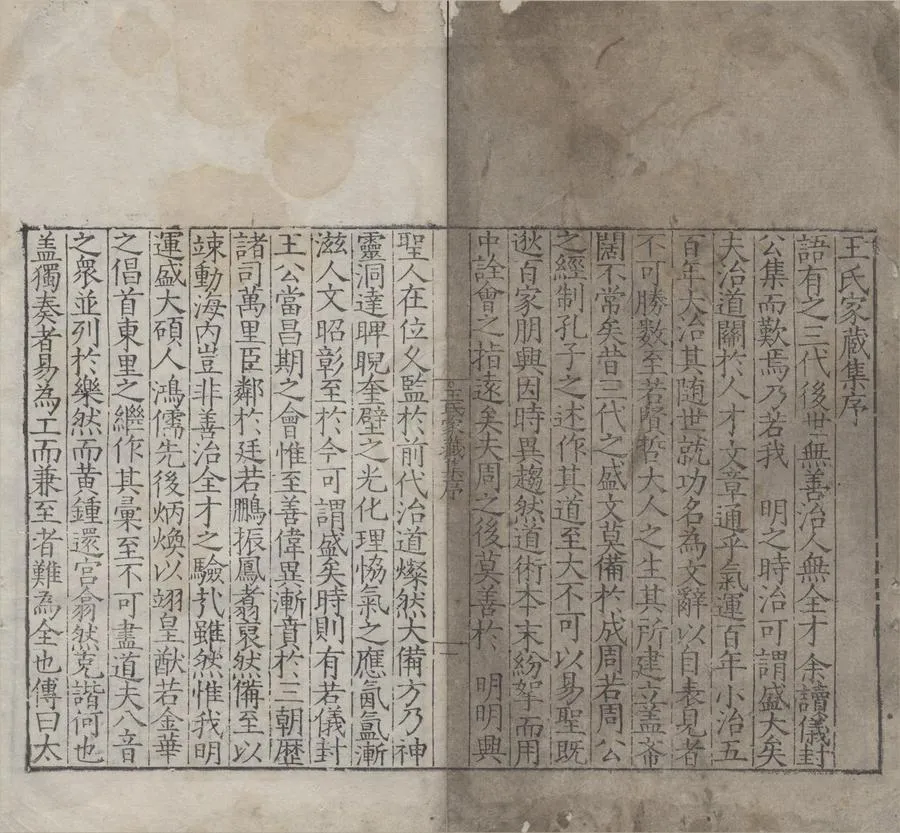 王氏家藏集序
語有之三代後世無善治人無全才余讀儀封
公集而歎焉乃若我　明之時治可謂盛大矣
夫治道關於人才文章通乎氣運百年小治五
百年大治其随世就功名為文辭以自表見者
不可勝數至若賢哲大人之生其所建立盖
闊不常矣昔三代之盛文莫備於成周若周公
之經制孔子之述作其道至大不可以易聖既
逖百家朋興因時異趨然道術本末紛挐而用
中詮會之指遠矣夫周之後莫善於　明明興
王氏家藏集序
聖人在位乆監於前代治道燦然大備方乃神
靈洞達睥睨奎壁之光化理恊氣之應氤氳漸
滋人文昭彰至於今可謂盛矣時則有若儀封
王公當昌期之會惟至善偉異漸賁於三朝歷
諸司萬里臣鄰於廷若鵬振鳳翥裒然備至以
竦動海内豈非善治全才之驗㢤雖然惟我明
運盛大碩人鴻儒先後炳煥以翊皇猷若金華
之倡首東里之繼作其彙至不可盡道夫八音
之衆並列於樂然而黄鍾還宮翕然克諧何也
盖獨奏者易為工而兼至者難為全也傳曰太